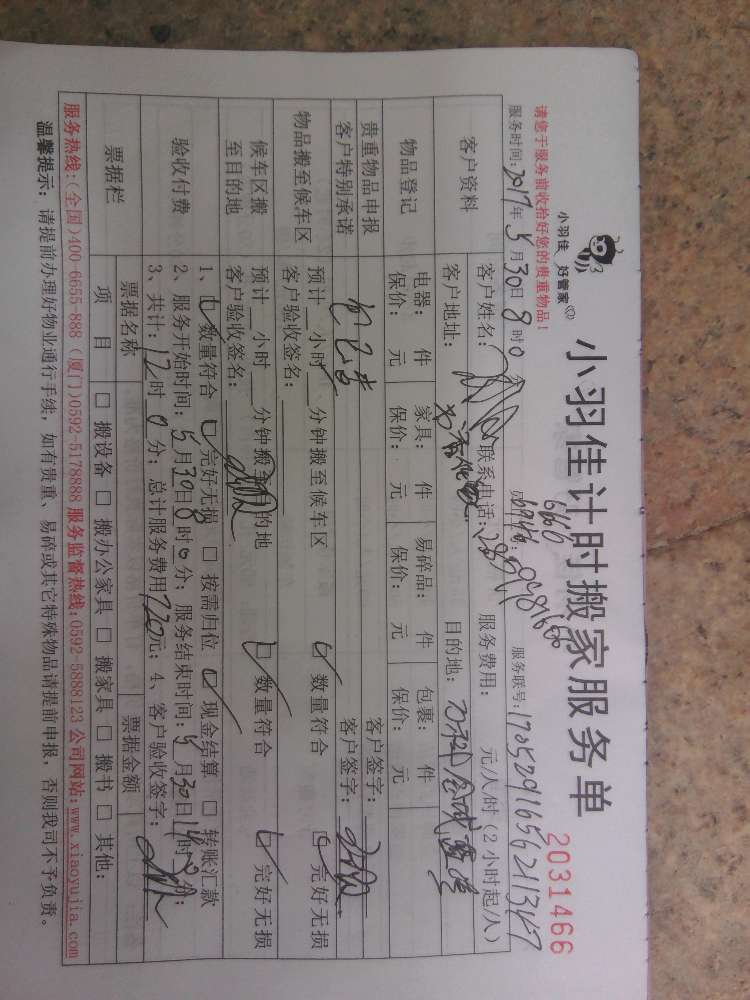 小羽佳 好管家
小羽佳计时搬家服务单
2031466
请您于服务前收给好您的贵重物品!
服务时间: 2017年 5月30日 8时0
服务联号: 1705291656211347
客户资料
客户姓名: 联系电话: 服务费用: 元/人/时 (2小时起/人)
客户地址: 目的地:
物品登记
电器: 件 家具: 件 易碎品: 件 包裹: 件
保价: 元 保价: 元 保价: 元 保价: 元
贵重物品申报 客户签字:
客户特别承诺 客户签字:
物品搬至候车区
预计 小时 分钟搬至候车区 数量符合 完好无损
客户验收签名:
候车区搬至目的地
预计 小时 分钟搬至目的地 数量符合 完好无损
客户验收签名:
验收付费
1、 数量符合 完好无损 □ 按需归位 现金结算 □ 转账汇款
2、服务开始时间: 5月30日8时0分; 服务结束时间: 5月30日14时 分;
3、共计: 12时0分; 总计服务费用720元; 4、客户验收签字:
票据栏
票据名称 票据金额
项目 □ 搬设备 □ 搬办公家具 □ 搬家具 □ 搬书 □ 其他:
服务热线:(全国)400-6655-888 (厦门)0592-5178888 服务监督热线:0592-5888123 公司网站:www.xiaoyujia.com
温馨提示: 请提前办理好物业通行手续, 如有贵重、易碎或其它特殊物品请提前申报, 否则我司不予负责。